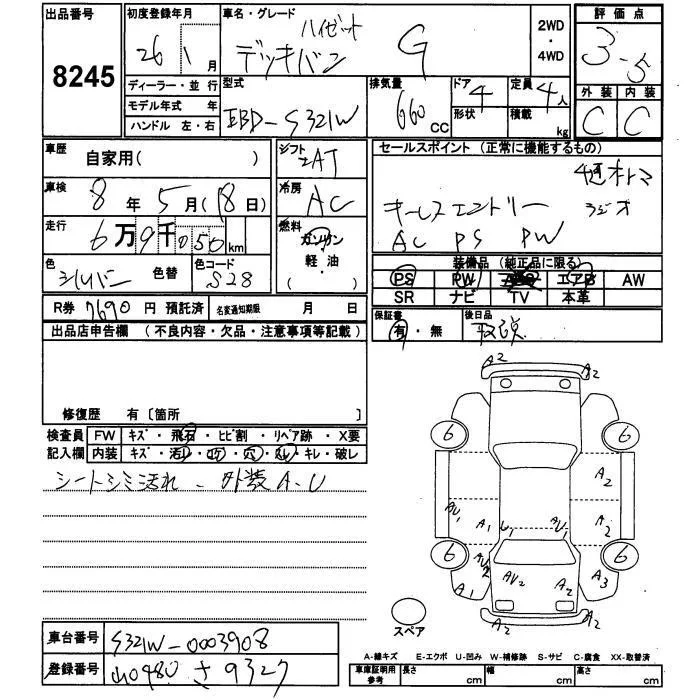 出品番号 初度登録年月 車名・グレード ハイゼット 2WD ・ 4WD 評価点
8245 26年 1月 デッキバン G 3.5
ディーラー・並行 型式 排気量 ドア 4 定員 4人 外装 内装
モデル年式 年 EBD-S321W 660 CC 形状 積載 kg C C
ハンドル 左・右
車歴 自家用( ) シフト 2AT セールスポイント (正常に機能するもの)
車検 8年 5月(18日) 冷房 AC キーレスエントリー ラジオ
走行 6万9千050km 燃料 ガソリン AC PS PW
色 シルバー 色替 色コード S28 軽油 ( ) 装備品 (純正品に限る)
PS PW エアB AW
SR ナビ TV 本革
R券 7690 円 預託済 名変通知期限 月 日
保証書 有・無 後日品 取説
出品店申告欄 (不良内容・欠品・注意事項等記載)
修復歴 有〔箇所
検査員 FW キズ・飛石・ヒビ割・リペア跡・X要
記入欄 内装 キズ・汚レ・コゲ・穴・スレ・キレ・破レ
シートシミ汚れ - 外装A.U
A2 A2
6 6
A2
AU1 A1 U1 AU1 A2
6 6
AU2 A1 AU2 A2 A3
A2 A2
スペア
車台番号 S321W-0003908
登録番号 さ9327
A-線キズ E-エクボ U-凹み W-補修跡 S-サビ C-腐食 XX-取替済
車庫証明用参考 長さ cm 幅 cm 高さ cm